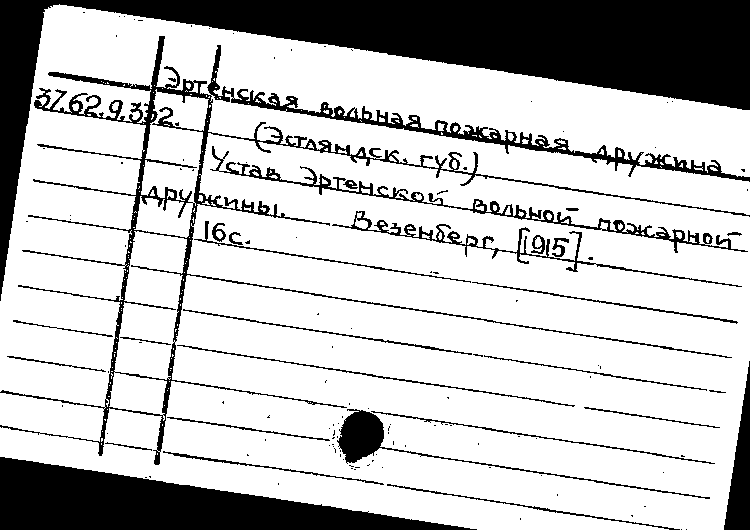 Эртенская вольная пожарная дружина.
37.62.9.332.
(Эстляндск. губ.)
Устав Эртенской вольной пожарной
дружины. Везенберг, [1915].
16 с.